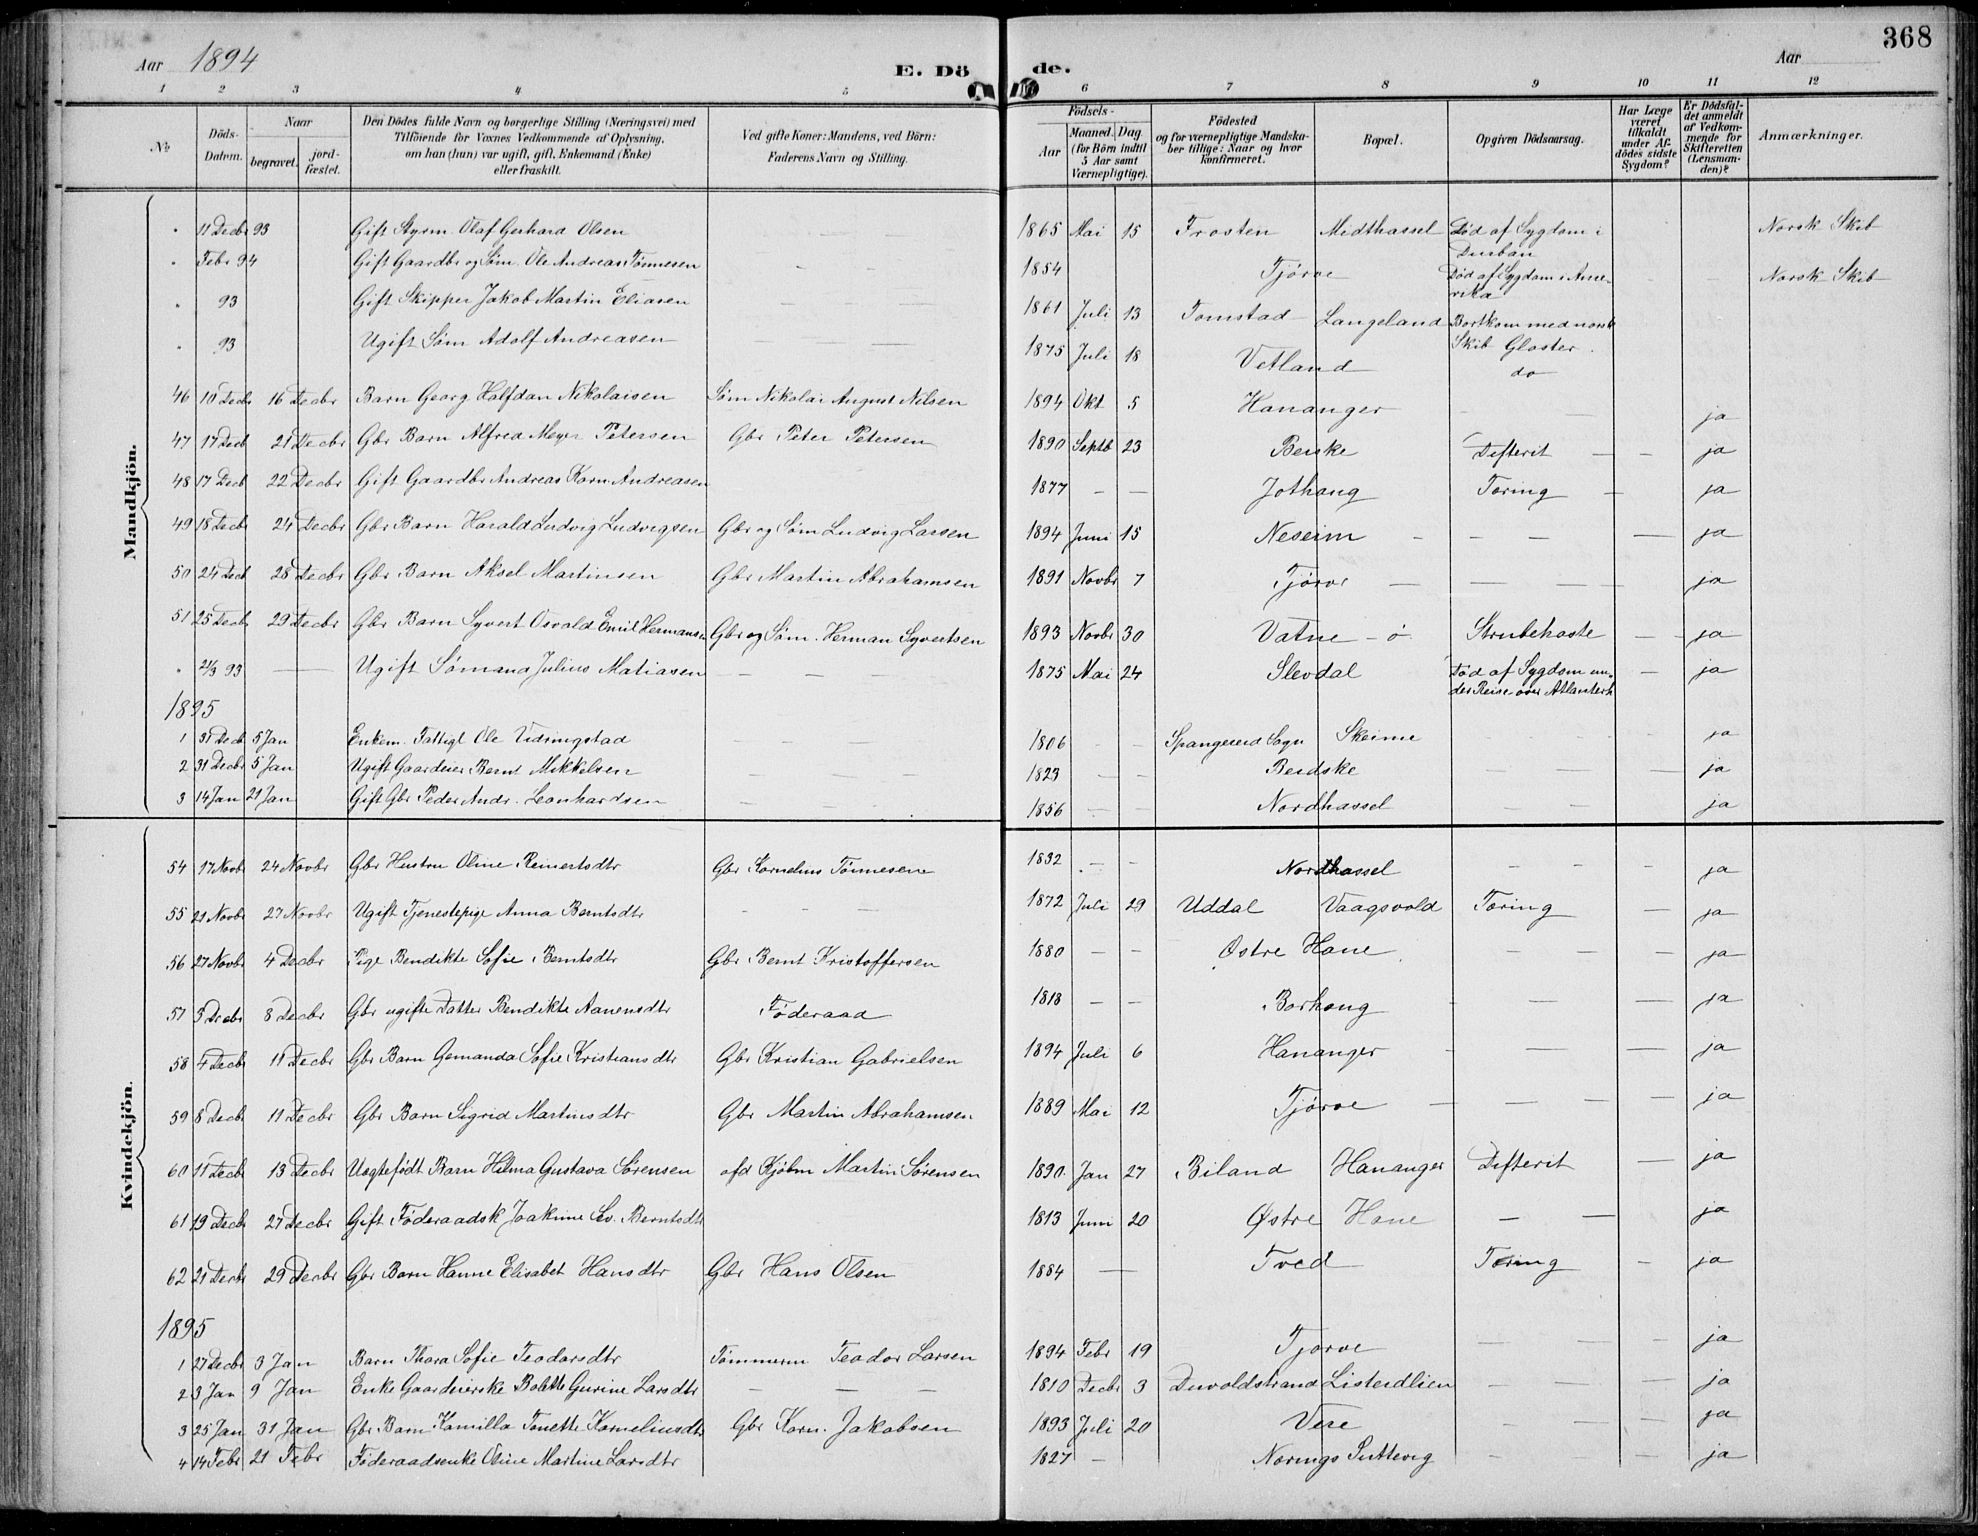 368
Aar 1894 E. Döde. Aar
1 2 3 4 5 6 7 8 9 10 11 12
№
Döds-Datum.
Naar
begravet. jord-fæstet.
Den Dödes fulde Navn og borgerlige Stilling (Næringsvei) med
Tilföiende for Voxnes Vedkommende af Oplysning,
om han (hun) var ugift, gift, Enkemand (Enke)
eller fraskilt.
Ved gifte Koner: Mandens, ved Börn:
Faderens Navn og Stilling.
Födsels-
Aar
Maaned. Dag
(for Börn indtil
5 Aar samt
Værnepligtige).
Födested
og for værnepligtige Mandska-
ber tillige: Naar og hvor
konfirmeret.
Bopæl.
Opgiven Dödsaarsag.
Har Læge
været
tilkaldt
under Af-
dödes sidste
Sygdom?
Er Dödsfal-
det anmeldt
af Vedkom-
mende for
Skifteretten
(Lensman-
den)?
Anmærkninger.
Mandkjön.
" 11 Decbr 93 Gift Styrm. Olaf Gerhard Olsen 1865 Mai 15 Frosten Midthassel Død af Sygdom i Durban Norsk Skib
" Febr 94 Gift Gaardbr og Søm. Ole Andreas Tønnesen — — 1854 Tjørve Død af Sygdom i Amerika — — Norsk Skib
" 93 Gift Skipper Jakob Martin Eliasen — — 1861 Juli 13 Tomstad Langeland Bortkom med norsk Skib Gloster.
" 93 Ugift Søm Adolf Andreasen — — 1875 Juli 18 Vetland do
46 10 Decbr 16 Decbr Barn Georg Halfdan Nikolaisen Søm Nikolai August Nilsen 1894 Okt 5 Hananger — — ja
47 17 Decb 21 Decbr Gbr Barn Alfred Meyer Petersen Gbr Peter Petersen 1890 Septb 23 Berske Difterit — — ja
48 17 Decb 22 Decbr Gift Gaardbr Andreas Korn. Andreasen 1877 — — Jothaug Tæring — ja
49 18 Decbr 24 Decbr Gbr Barn Harald Ludvig Ludvigsen Gbr og Søm Ludvig Larsen 1894 Juni 15 Neseim — — — — ja
50 24 Decb 28 Decbr Gbr Barn Aksel Martinsen Gbr Martin Abrahamsen 1891 Novbr 7 Tjørve — — — — ja
51 25 Decb 29 Decbr Gbr Barn Syvert Osvald Emil Hermansen Gbr og Søm. Herman Syvertsen 1893 Novbr 30 Vatne - ø Strubehoste — — ja
" 2/3 93 — Ugift Sømand Julius Matiasen — — — 1875 Mai 24 Slevdal Død af Sygdom under Reise over Atlanterh — ja
1895
1 31 Decb 5 Jan Enkem. Fattigl Ole Vidringstad — — 1806 — — Spangereid Sogn Skeime — — — ja
2 31 Decbr 5 Jan Ugift Gaardeier Bernt Mikkelsen — — — 1823 — — Berdske — — — ja
3 14 Jan 21 Jan Gift Gbr Peder Andr. Leonhardsen — — — 1856 — — Nordhassel — — — ja
Kvindekjön.
54 17 Novbr 24 Novbr Gbr Hustru Oline Reinertsdtr Gbr Kornelius Tønnesen 1832 — — Nordhassel — — — ja
55 21 Novbr 27 Novbr Ugift Tjenestepige Anna Berntsdtr — — — 1872 Juli 29 Uddal Vaagsvold Tæring — ja
56 27 Novbr 4 Decbr Pige Bendikte Sofie Berntsdtr Gbr Bernt Kristoffersen 1880 — — Østre Hane — — — ja
57 3 Decbr 8 Decbr Gbr ugifte Datter Bendikte Aanensdtr Føderaad 1818 — — Borhaug — — — ja
58 4 Decbr 11 Decbr Gbr Barn Gemanda Sofie Kristiansdtr Gbr Kristian Gabrielsen 1894 Juli 6 Hananger — — — — ja
59 8 Decbr 11 Decbr Gbr Barn Sigrid Martinsdtr Gbr Martin Abrahamsen 1889 Mai 12 Tjørve — — — — ja
60 11 Decbr 13 Decbr Uægtefødt Barn Hilma Gustava Sørensen afd Kjøbm Martin Sørensen 1890 Jan 27 Biland Hananger Difterit — ja
61 19 Decbr 27 Decbr Gift Føderaadsk Joakime Sev. Berntsdtr 1813 Juni 20 Østre Hane — — ja
62 21 Decbr 29 Decbr Gbr Barn Hanne Elisabet Hansdtr Gbr Hans Olsen 1884 — Tved Tæring — ja
1895
1 27 Decbr 3 Jan Barn Thora Sofie Teodorsdtr Tømmerm Teodor Larsen 1894 Febr 19 Tjørve — — — ja
2 3 Jan 9 Jan Enke Gaardeierske Bolette Gurine Larsdtr — — — 1810 Decbr 3 Duvoldstrand Listeidlien — — — ja
3 25 Jan 31 Jan Gbr. Barn Kamilla Tonette Korneliusdtr Gbr Korn. Jakobsen 1893 Juli 20 Vere — — — ja
4 14 Febr 21 Febr Føderaadsenke Oline Martine Larsdtr 1827 — Nørings Puttevig — — — ja